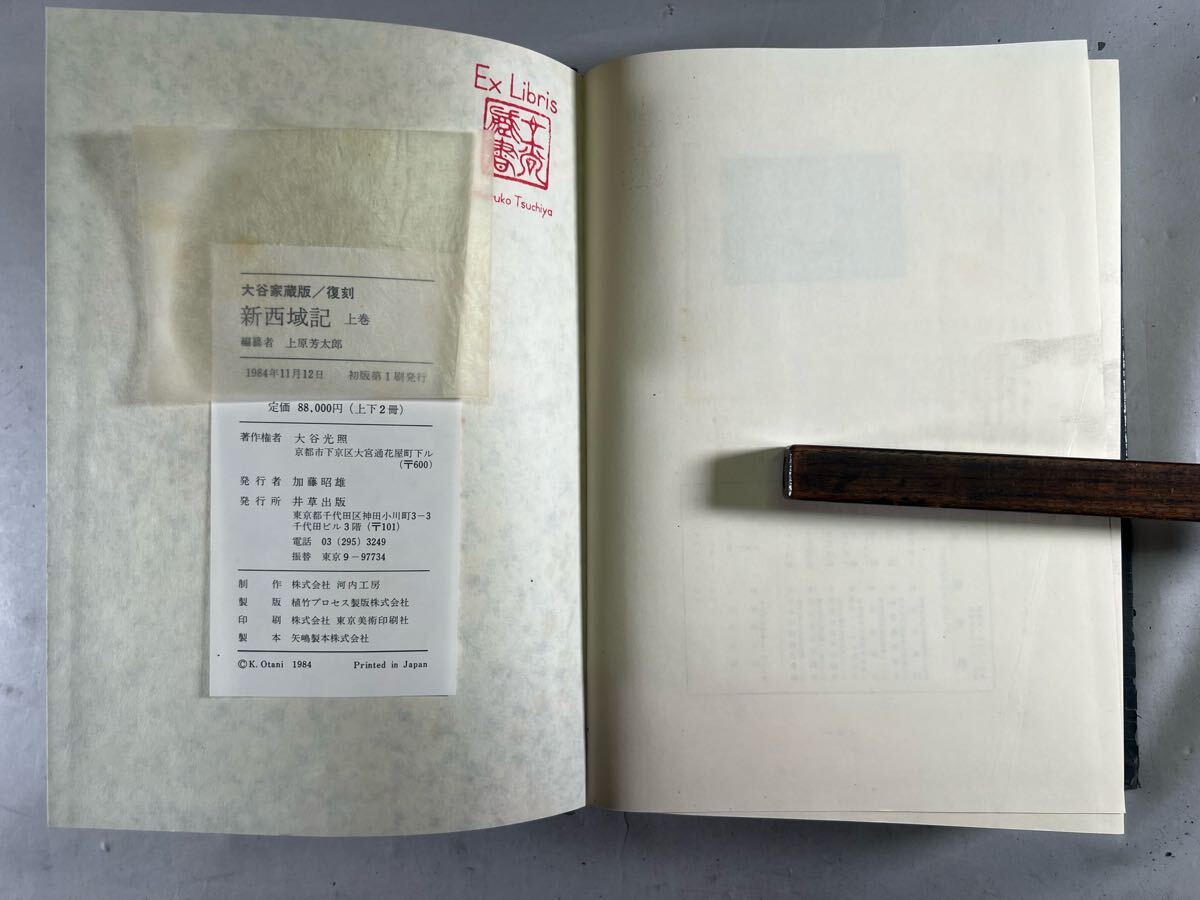 Ex Libris
蔵書
uko Tsuchiya
大谷家蔵版／復刻
新西域記 上巻
編纂者 上原芳太郎
1984年11月12日 初版第1刷発行
定価 88,000円（上下2冊）
著作権者 大谷光照
京都市下京区大宮通花屋町下ル
（〒600）
発行者 加藤昭雄
発行所 井草出版
東京都千代田区神田小川町3－3
千代田ビル3階（〒101）
電話 03（295）3249
振替 東京9－97734
制作 株式会社 河内工房
製版 植竹プロセス製版株式会社
印刷 株式会社 東京美術印刷社
製本 矢嶋製本株式会社
©K. Otani 1984 Printed in Japan